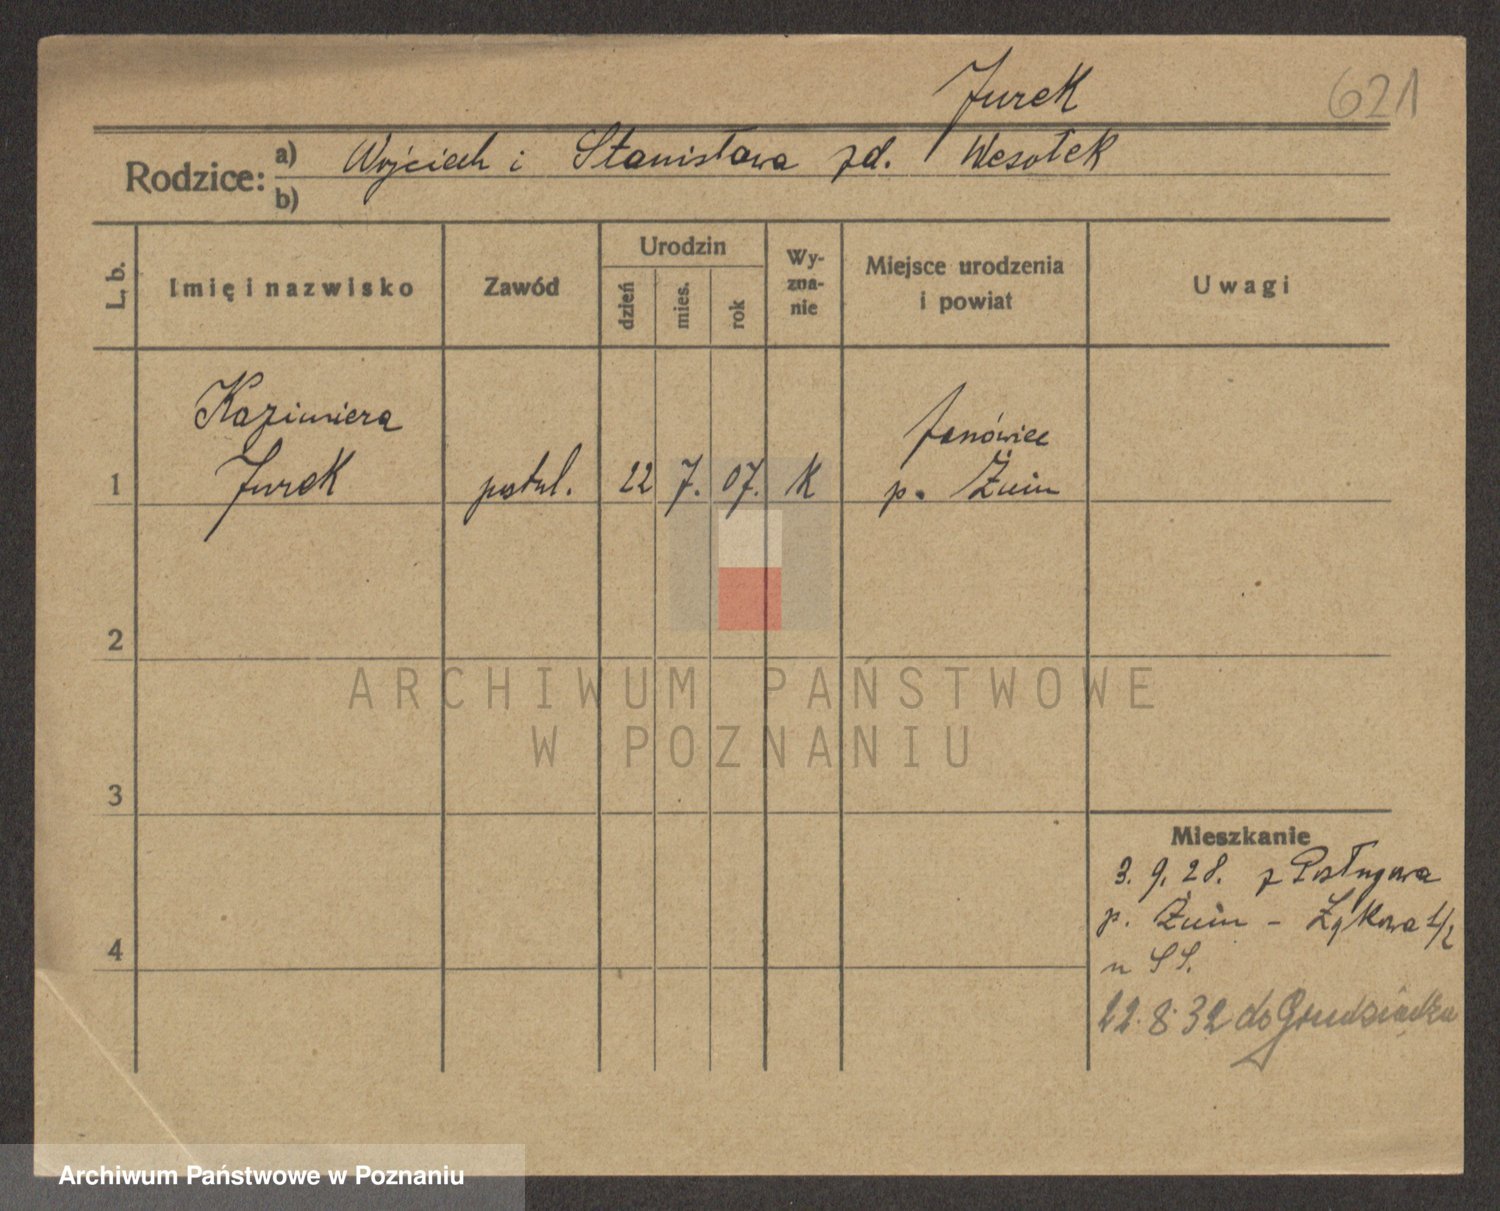 Jurek 621
Rodzice: a) Wojciech i Stanisława zd. Wesołek
b)
L. b. Imię i nazwisko Zawód Urodzin dzień mies. rok Wy-zna-nie Miejsce urodzenia i powiat Uwagi
Kazimiera Janówiec
1 Jurek postul. 22 7. 07. K p. Żnin
2
ARCHIWUM PAŃSTWOWE
W POZNANIU
3
Mieszkanie
3. 9. 28. z Posługowa
p. Żnin - Łąkowa 1/2
4
u SS.
22. 8. 32 do Grudziądza
Archiwum Państwowe w Poznaniu